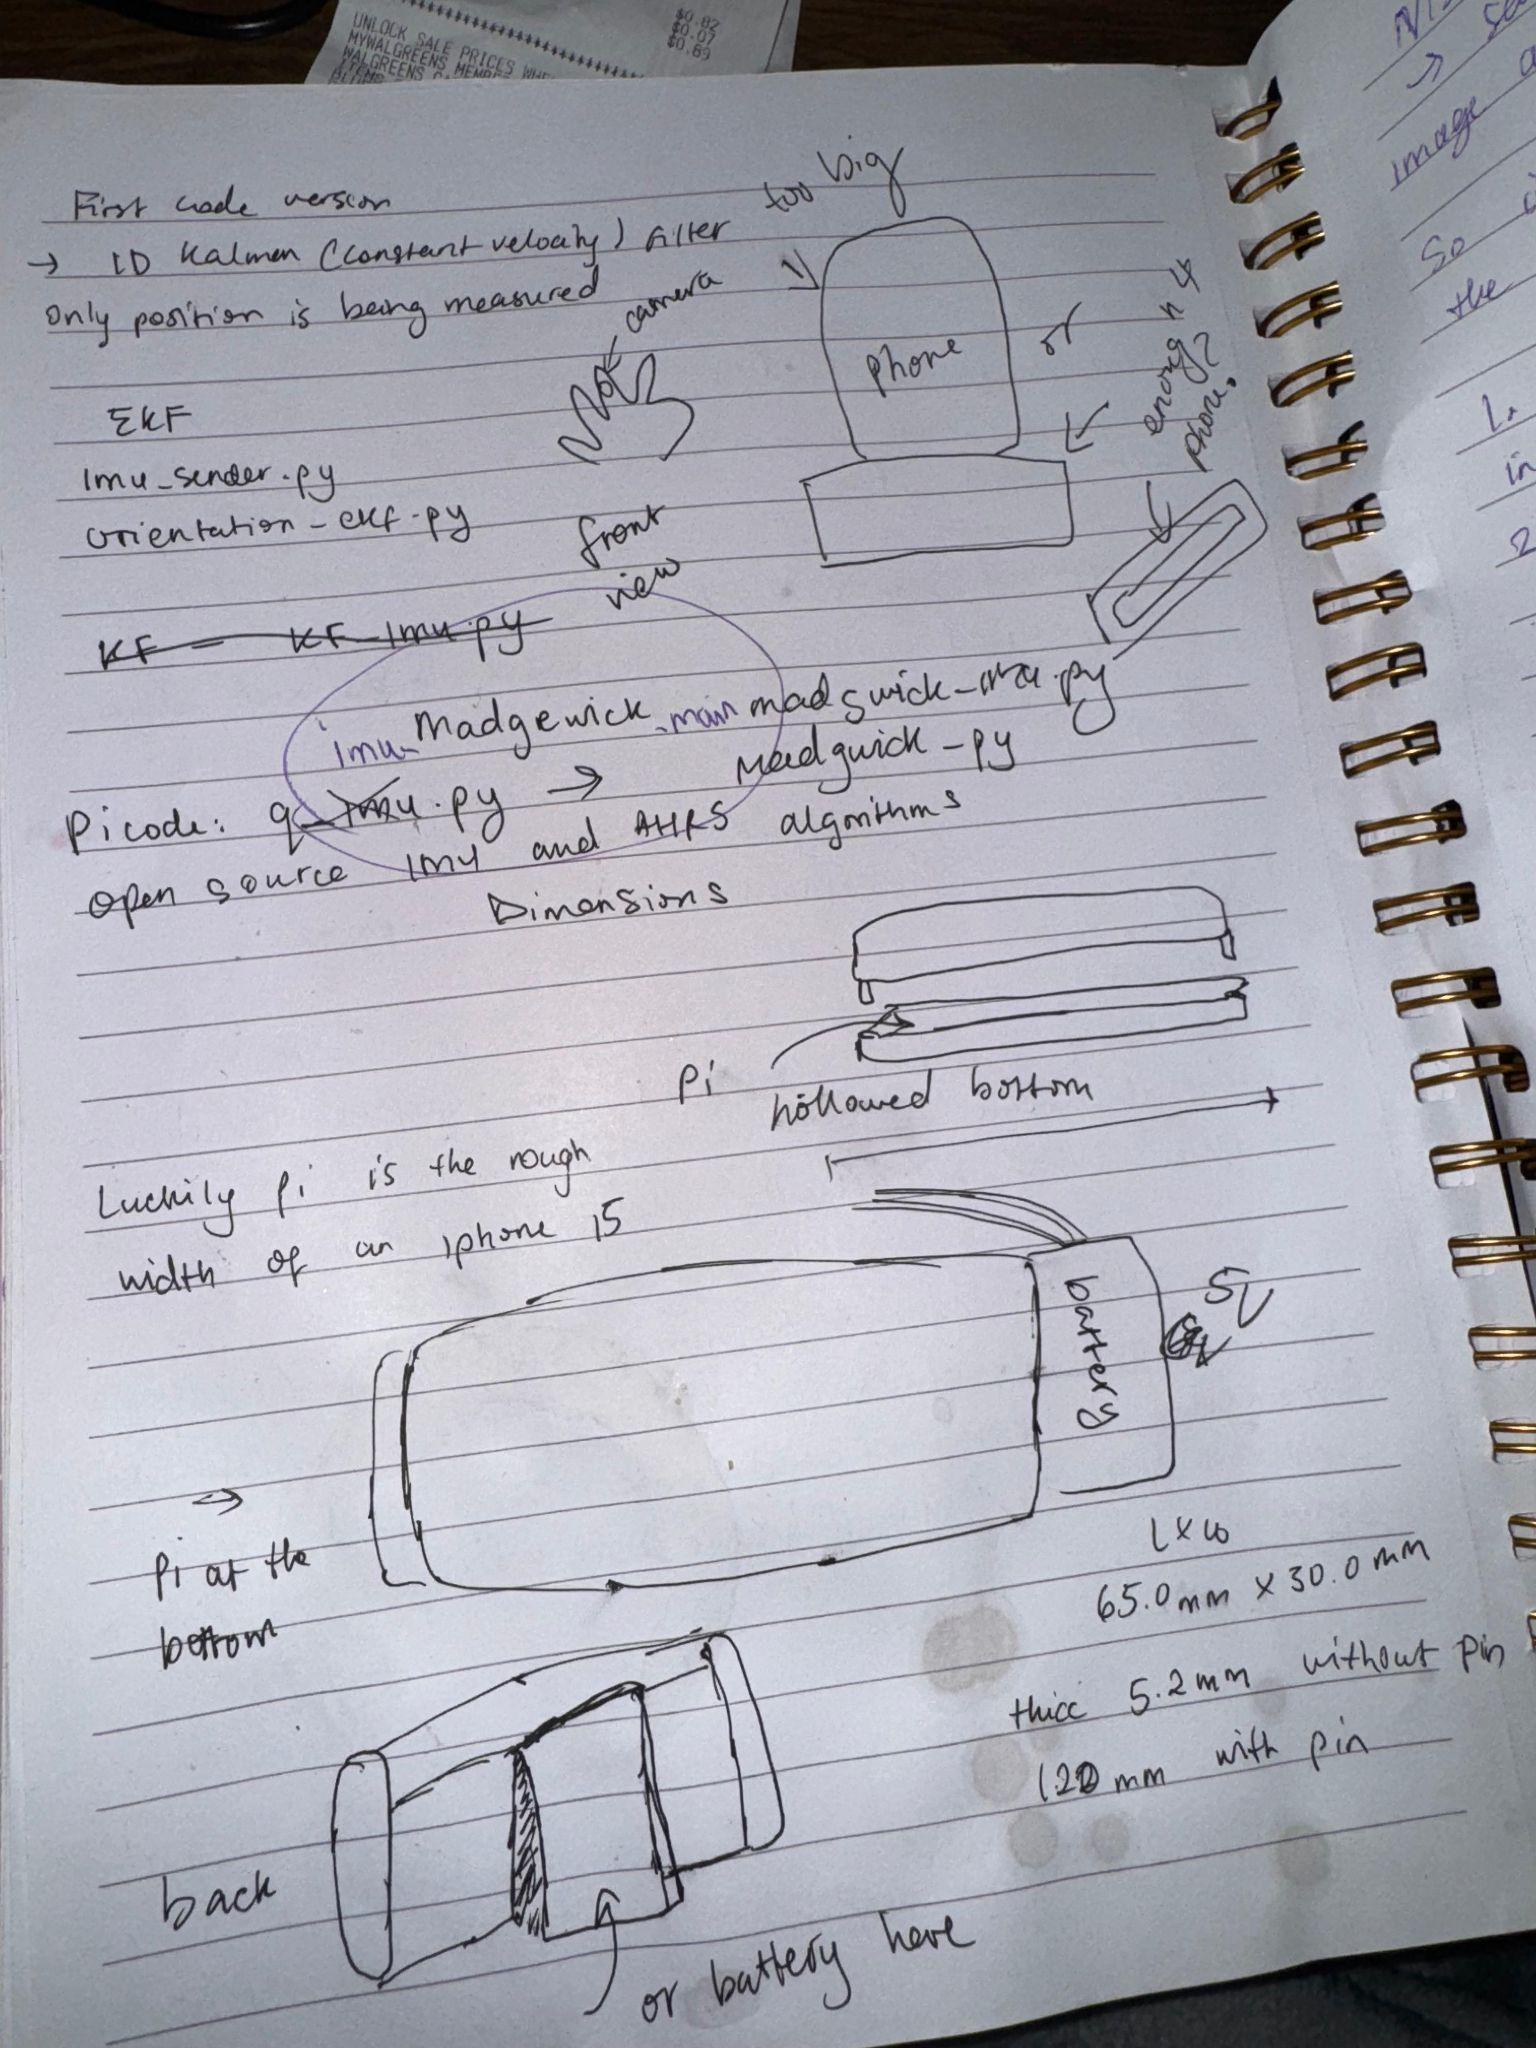 $0.82
$0.07
$0.89
UNLOCK SALE PRICES
MYWALGREENS
WALGREENS
First code version
→ 1D Kalman (constant velocity) filter
only position is being measured
too big
camera
phone
or
enough 4
phone?
EKF
imu_sender.py
orientation-ekf.py
front
view
KF - KF-imu.py
imu-Madgewick-main madgwick-imu.py
Picode: q_imu.py → Madgwick-py
open source IMU and AHRS algorithms
Dimensions
Pi
hollowed bottom
Luckily pi is the rough
width of an iphone 15
battery
5V
→
Pi at the
bottom
L x W
65.0mm x 30.0mm
thicc 5.2mm without pin
mm with pin
back
or battery here
image
So
the
1.
in
2